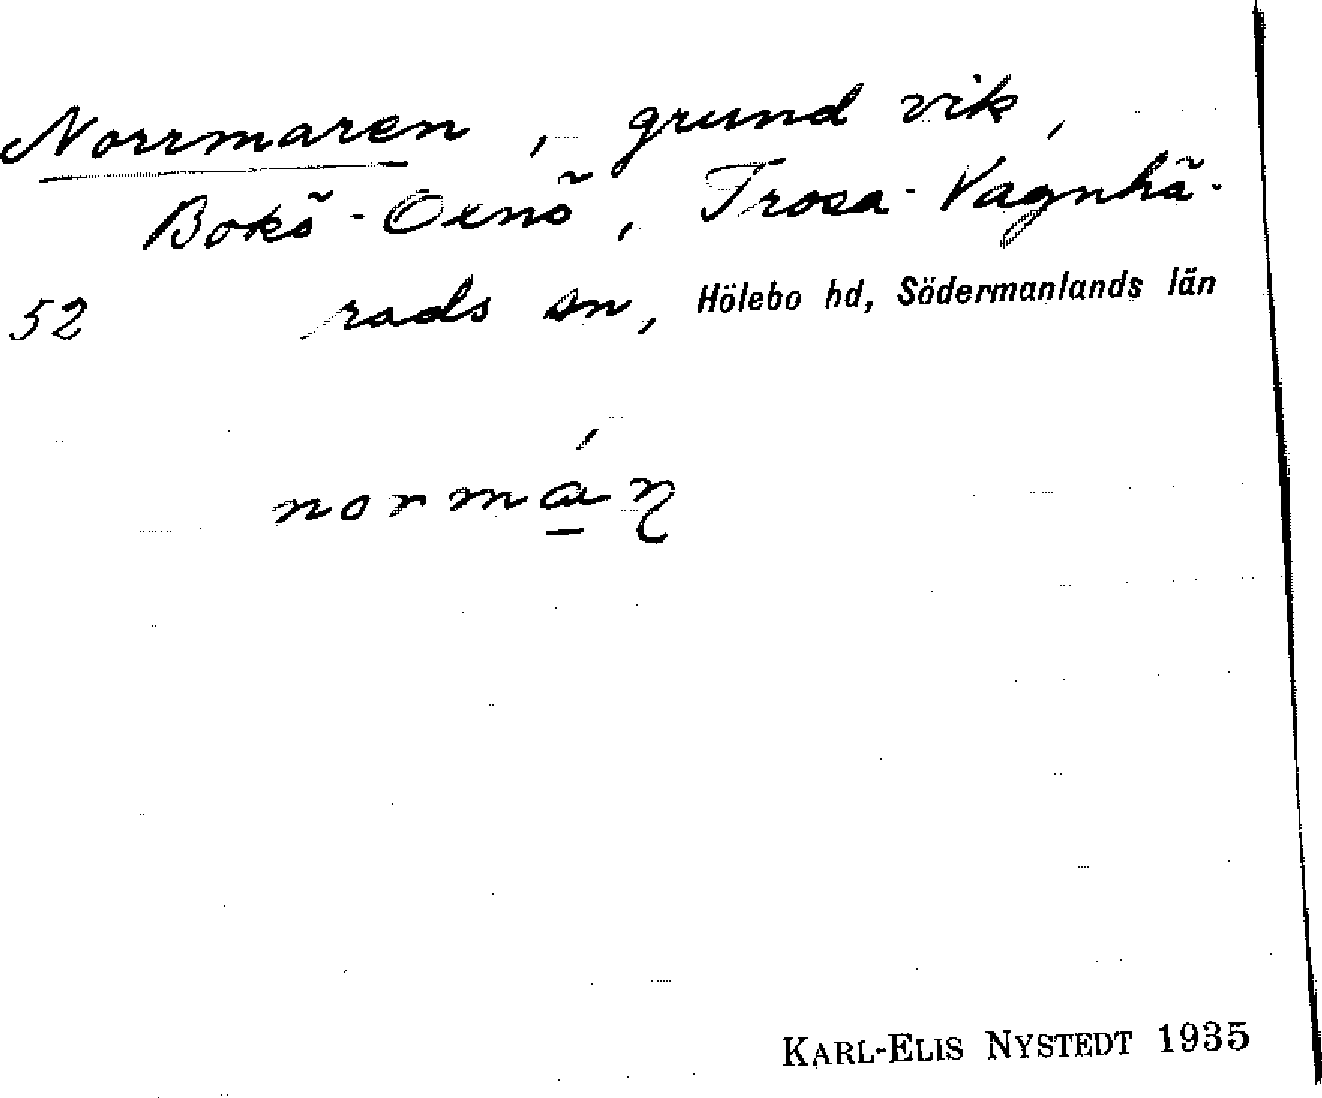 Norrmaren, grund vik,
Bokö-Oxnö, Trosa-Vagnhä-
52 rads sn, Hölebo hd, Södermanlands län
normán
KARL-ELIS NYSTEDT 1935